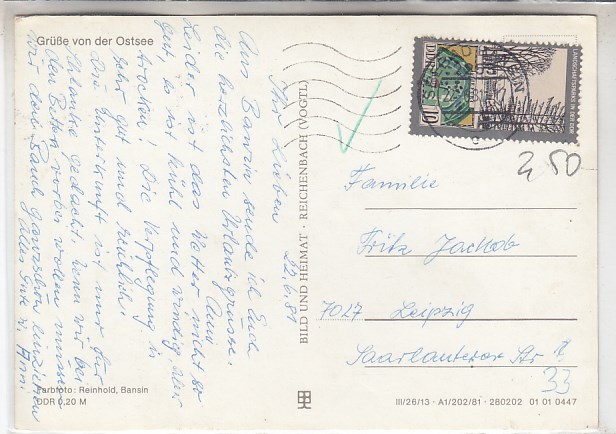 Grüße von der Ostsee
22.6.81
Ihr Lieben
Aus Bansin sende ich Euch
die herzlichsten Urlaubsgrüsse.
Leider ist das Wetter nicht so
gut, es ist kühl und windig aber
trocken! Die Verpflegung ist
sehr gut und reichlich!
Die Unterkunft ist nur für
Schlanke gedacht, wenn wir bei
den Betten vorbei wollen müssen
wir den Bauch ganz schön einziehen
Alles Gute Anni
Farbfoto: Reinhold, Bansin
DDR 0,20 M
BILD UND HEIMAT · REICHENBACH (VOGTL)
DDR
10
2,50
Familie
Fritz Jachob
7027 Leipzig
Saarlauterer Str
33
III/26/13 · A1/202/81 · 280202 01 01 0447